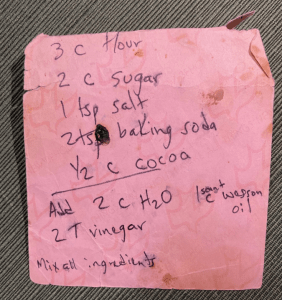 3 c flour
2 c sugar
1 tsp salt
2 tsp baking soda
1/2 c cocoa
Add 2 c H2O
1 scant c Wesson oil
2 T vinegar
Mix all ingredients